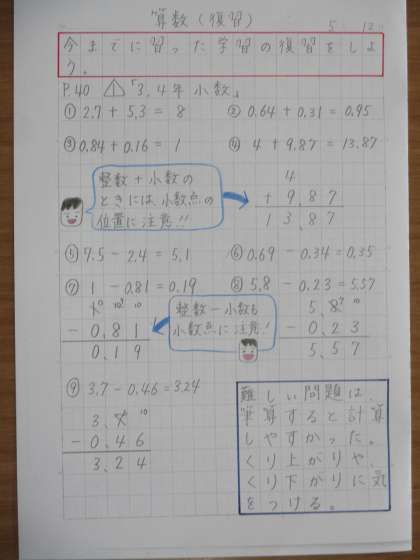 算数(復習)
5 12
今までに習った学習の復習をしよ
う。
P40 ⚠「3,4年小数」
① 2.7 + 5.3 = 8 ② 0.64 + 0.31 = 0.95
③ 0.84 + 0.16 = 1 ④ 4 + 9.87 = 13.87
整数+小数の
ときには小数点の
位置に注意!!
4
+ 9.87
13.87
⑤ 7.5 - 2.4 = 5.1 ⑥ 0.69 - 0.34 = 0.35
⑦ 1 - 0.81 = 0.19 ⑧ 5.8 - 0.23 = 5.57
- 0.81
0.19
整数-小数も
小数点に注意!
- 0.23
5.57
⑨ 3.7 - 0.46 = 3.24
- 0.46
3.24
難しい問題は、
筆算すると計算
しやすかった。
くり上がりや、
くり下がりに気
をつける。